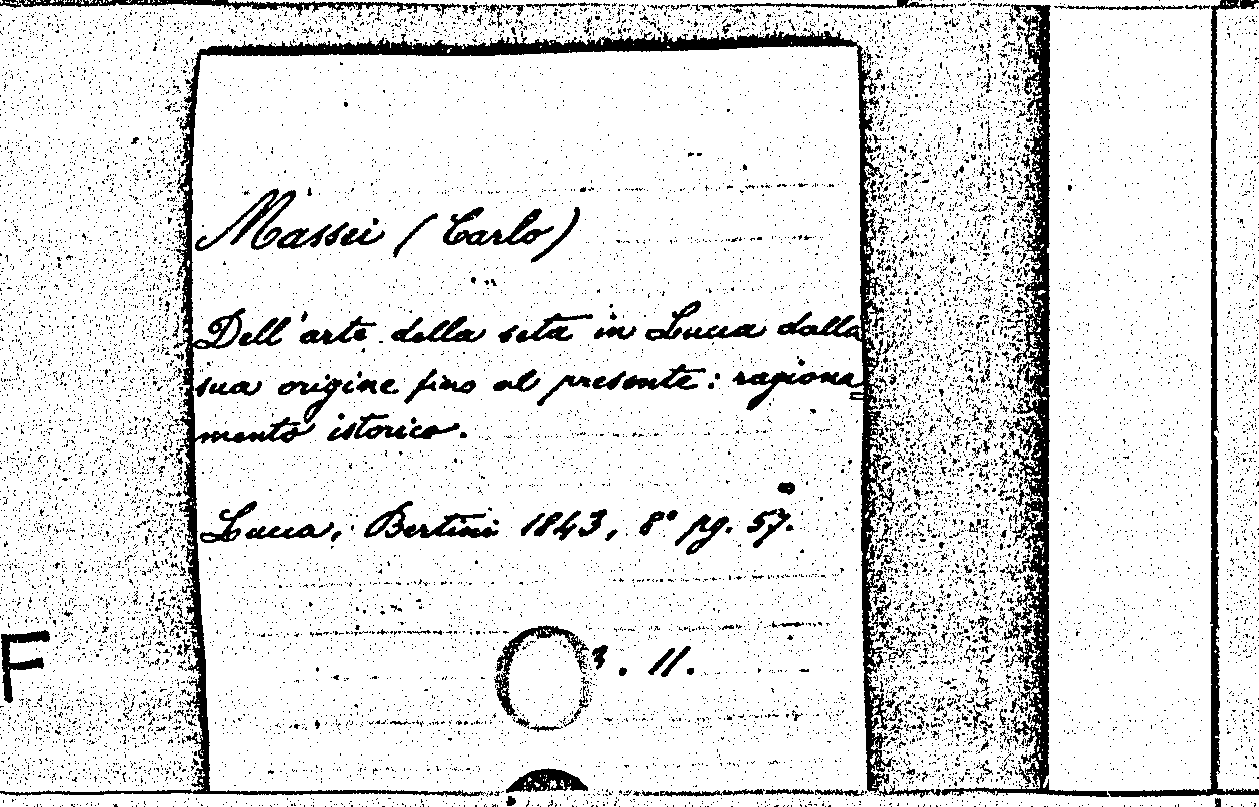 Massei (Carlo)
Dell'arte della seta in Lucca dalla
sua origine fino al presente: ragiona
mento istorico.
Lucca, Bertini 1843, 8° pg. 57.
. 11.
F